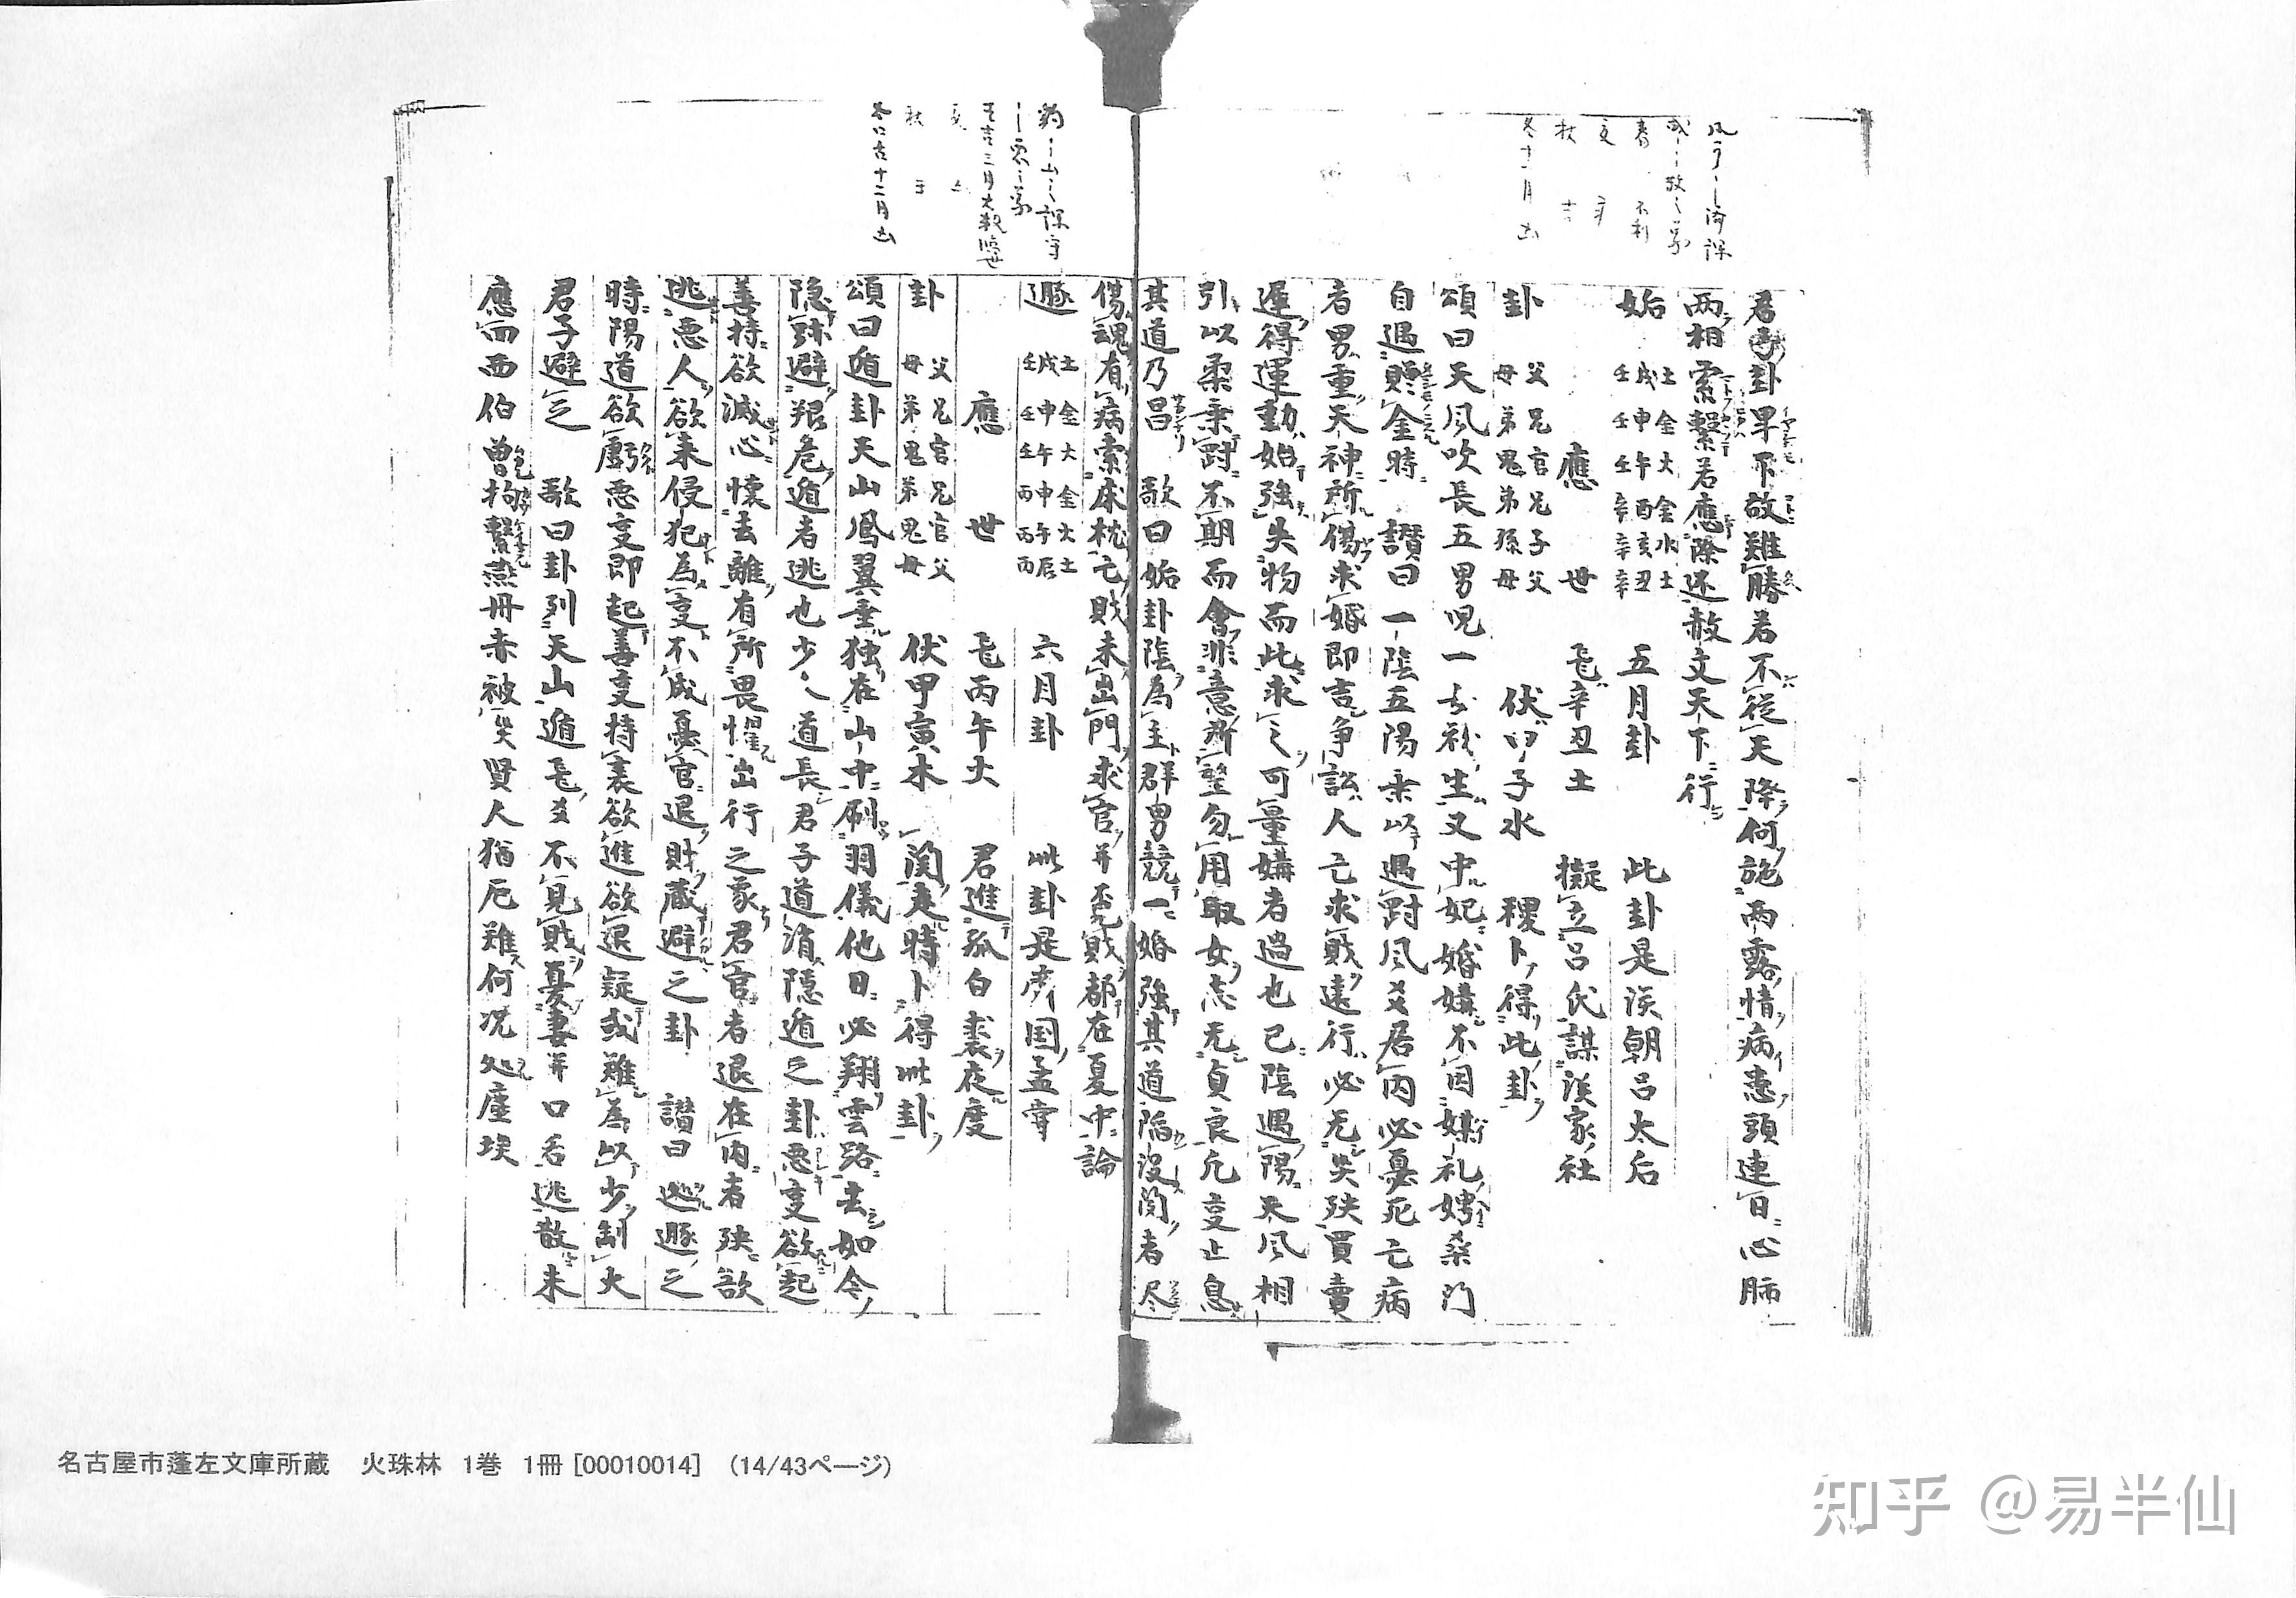 君子卦卑下故難勝若不從天降何施雨露情病患頭連日心肺
两相索繫若應除还赦文天下行
姤 壬戌土 壬申金 壬午火 辛酉金 辛亥水 辛丑土 五月卦 此卦是漢朝呂太后
應 世 飛辛丑土 擬立呂氏謀漢家社
卦 父母 兄弟 官鬼 兄弟 子孫 父母 伏甲子水 稷卜得此卦
頌曰天風吹長五男児一女初生又中妃婚媾不因媒礼娉桑门
自遇贈金時 讃曰一陰五陽乗以遇尅风爻居内必憂死亡病
者男重天神所傷求婚即吉争訟人亡求財遠行必无失殃買賣
遅得運動始強失物而此求之可量媾者遘也已陰遇陽天风相
引以柔乗尅不期而會非意所望勿用取女志无貞良凡变止息
其道乃昌 歌曰姤卦陰為主群男競一婚強其道陥没関者尽
傷魂有病索床枕亡財未出門求官并否財都在夏中論
遯 壬戌土 壬申金 壬午火 丙申金 丙午火 丙辰土 六月卦 此卦是齐国孟甞
應 世 飛丙午火 君進狐白裘夜度
卦 父母 兄弟 官鬼 兄弟 官鬼 父母 伏甲寅木 関走時卜得此卦
頌曰遁卦天山鳳翼垂独在山中刷羽儀他日必翔雲路去如今
隐跡避艱危遁者逃也少人道長君子道消隱遁之卦悪变欲起
善持欲滅心懐去離有所畏懼出行之象君官者退在内者殃欲
逃悪人欲来侵犯為变不成憂官退財藏避之卦 讃曰逃遯之
時陽道欲虧悪变即起善变持衰欲進欲退疑或難為以少制大
君子避之 歌曰卦列天山遁飛爻不見財憂妻并口舌逃散未
應而西伯曽拘繋燕丹赤被災賢人猶厄難何况処塵埃
冬十二月凶
名古屋市蓬左文庫所蔵 火珠林 1巻 1冊 [00010014] (14/43ページ)
知乎 @易半仙